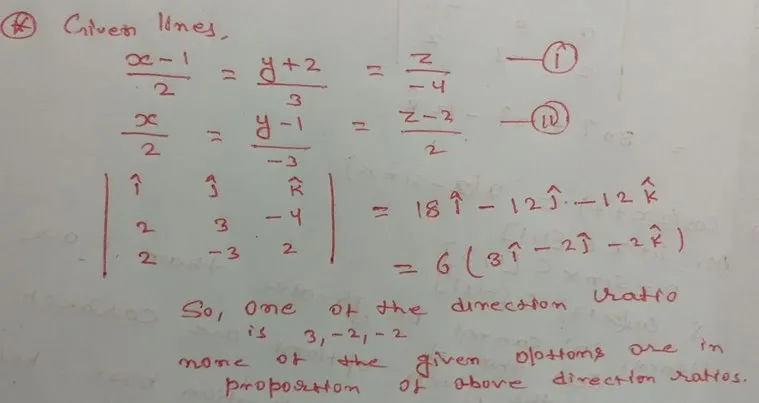 * Given lines,
x-1/2 = y+2/3 = z/-4 —(i)
x/2 = y-1/-3 = z-3/2 —(ii)
| î ĵ k̂ |
| 2 3 -4 | = 18î - 12ĵ - 12k̂
| 2 -3 2 | = 6(3î - 2ĵ - 2k̂)
So, one of the direction ratio
is 3, -2, -2
none of the given options are in
proportion of above direction ratios.